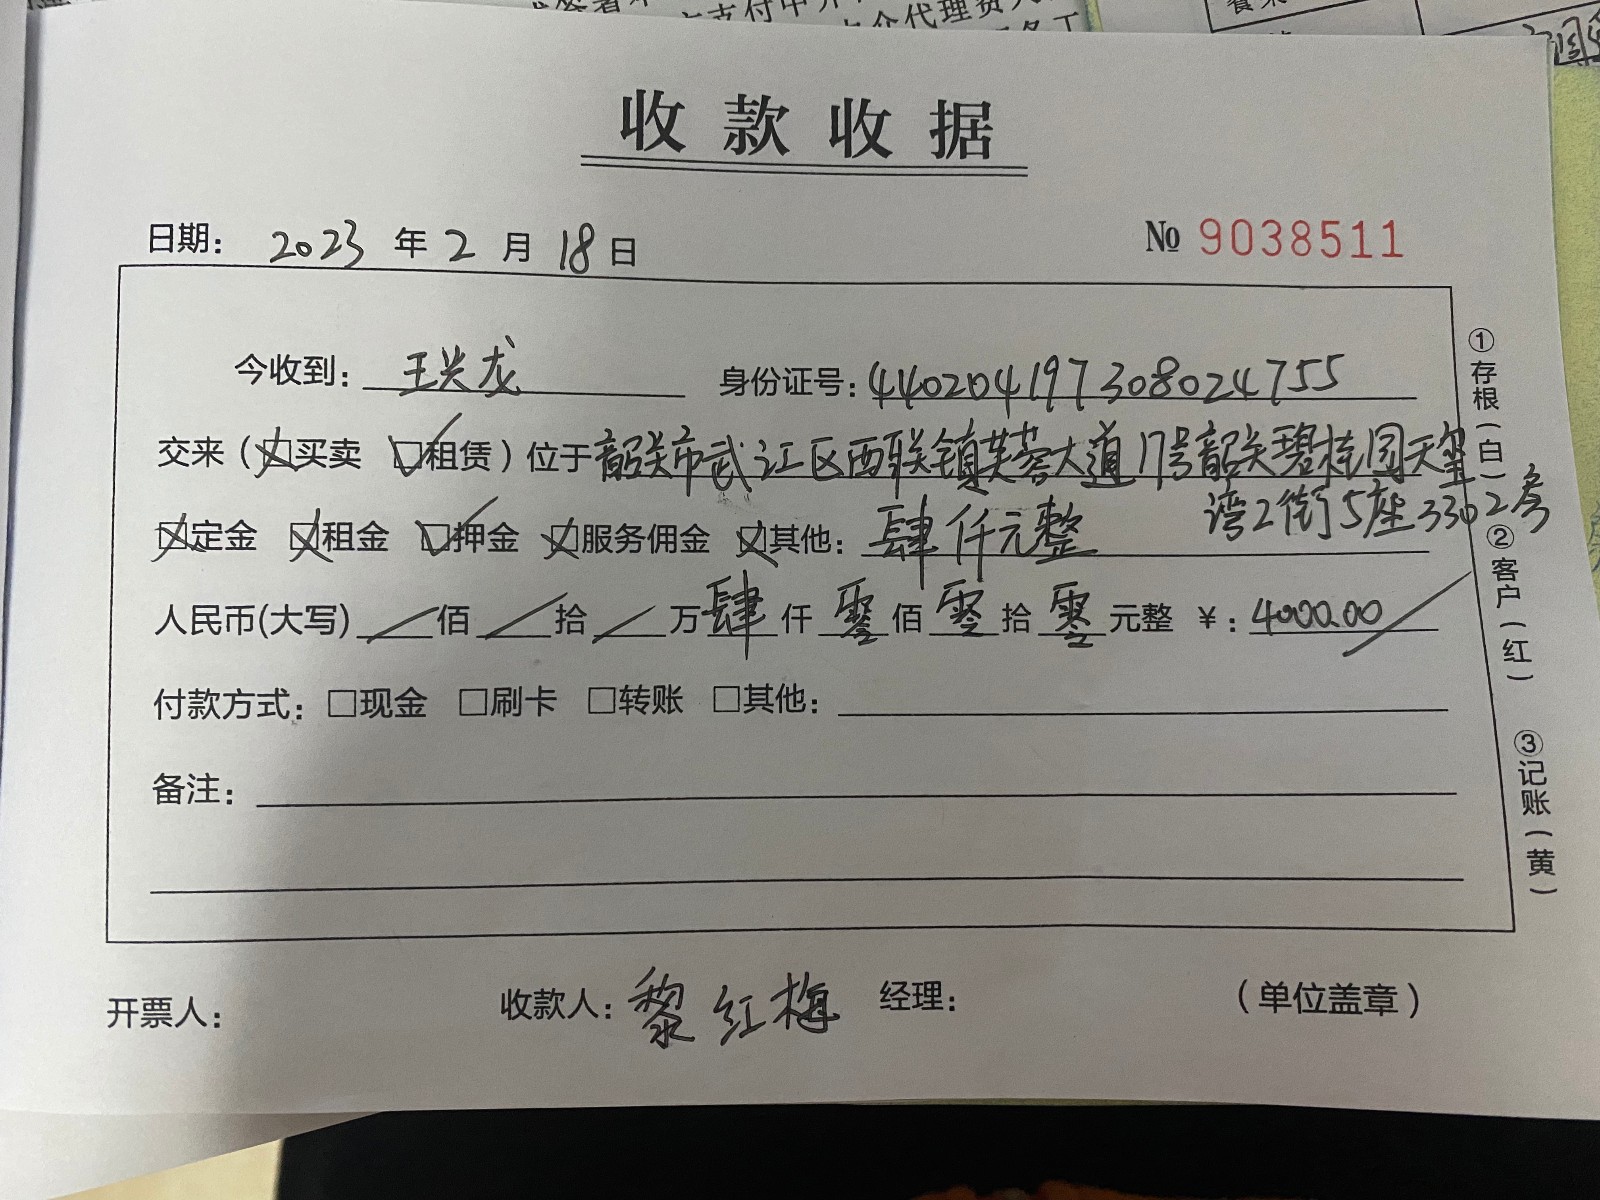 收款收据
日期: 2023 年 2 月 18 日 № 9038511
今收到: 王兴龙 身份证号: 440204197308024755
交来(☒买卖 ☑租赁)位于韶关市武江区西联镇芙蓉大道17号韶关碧桂园天玺
湾2街5座3302房
☒定金 ☒租金 ☑押金 ☒服务佣金 ☒其他: 肆仟元整
人民币(大写) / 佰 / 拾 / 万 肆 仟 零 佰 零 拾 零 元整 ¥: 4000.00
付款方式: □现金 □刷卡 □转账 □其他:
备注:
开票人: 收款人: 黎红梅 经理: (单位盖章)
①存根(白)
②客户(红)
③记账(黄)